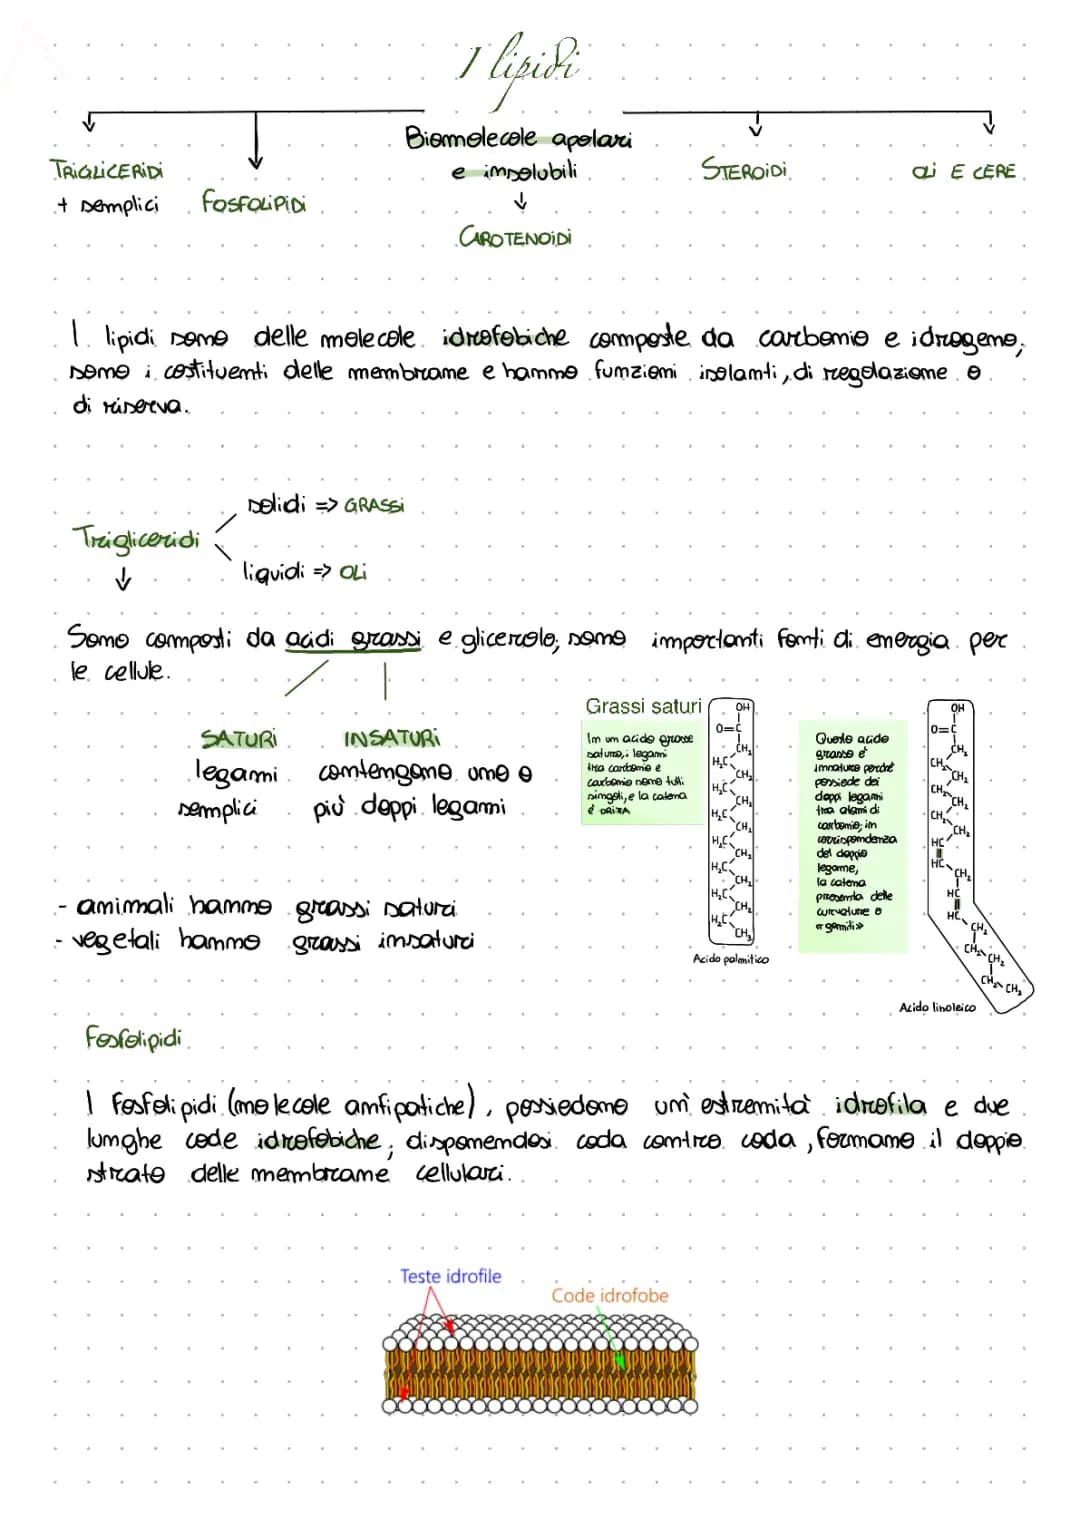 I lipidi
Biomolecole apolari
e insolubili
TRIGLICERIDI
+ semplici
FOSFOLIPIDI
CAROTENOIDI
STEROIDI
OLI E CERE
I lipidi sono delle molecole idrofobiche composte da carbonio e idrogeno,
sono i costituenti delle membrane e hanno funzioni isolanti, di regolazione e
di riserva.
Trigliceridi
solidi => GRASSI
liquidi => OLI
Sono composti da acidi grassi e glicerolo; sono importanti fonti di energia per
le cellule.
SATURI
legami
semplici
INSATURI
contengono uno o
più doppi legami
- animali hanno grassi saturi
- vegetali hanno grassi insaturi
Grassi saturi
In un acido grasso
saturo, i legami
tra carbonio e
carbonio sono tutti
singoli, e la catena
è
OH
O=C
CH₂
H₂C
CH₂
H₂C
CH₂
H₂C
CH₂
H₂C
CH₂
H₂C
CH₂
H₂C
CH₂
H₂C
CH₃
Acido palmitico
Questo acido
grasso è
insaturo perché
possiede dei
doppi legami
tra atomi di
carbonio; in
corrispondenza
del doppio
legame,
la catena
presenta delle
curvature o
«gomiti»
OH
O=C
CH₂
CH₂
CH₂
CH₂
CH₂
CH₂
CH₂
HC
HC
CH₂
HC
HC
CH₂
CH₂
CH₂
CH₂
CH₃
Acido linoleico
Fosfolipidi
I fosfolipidi (molecole anfipatiche), possiedono un' estremità idrofila e due
lunghe code idrofobiche; disponendosi coda contro coda, formano il doppio
strato delle membrane cellulari.
Teste idrofile
Code idrofobe